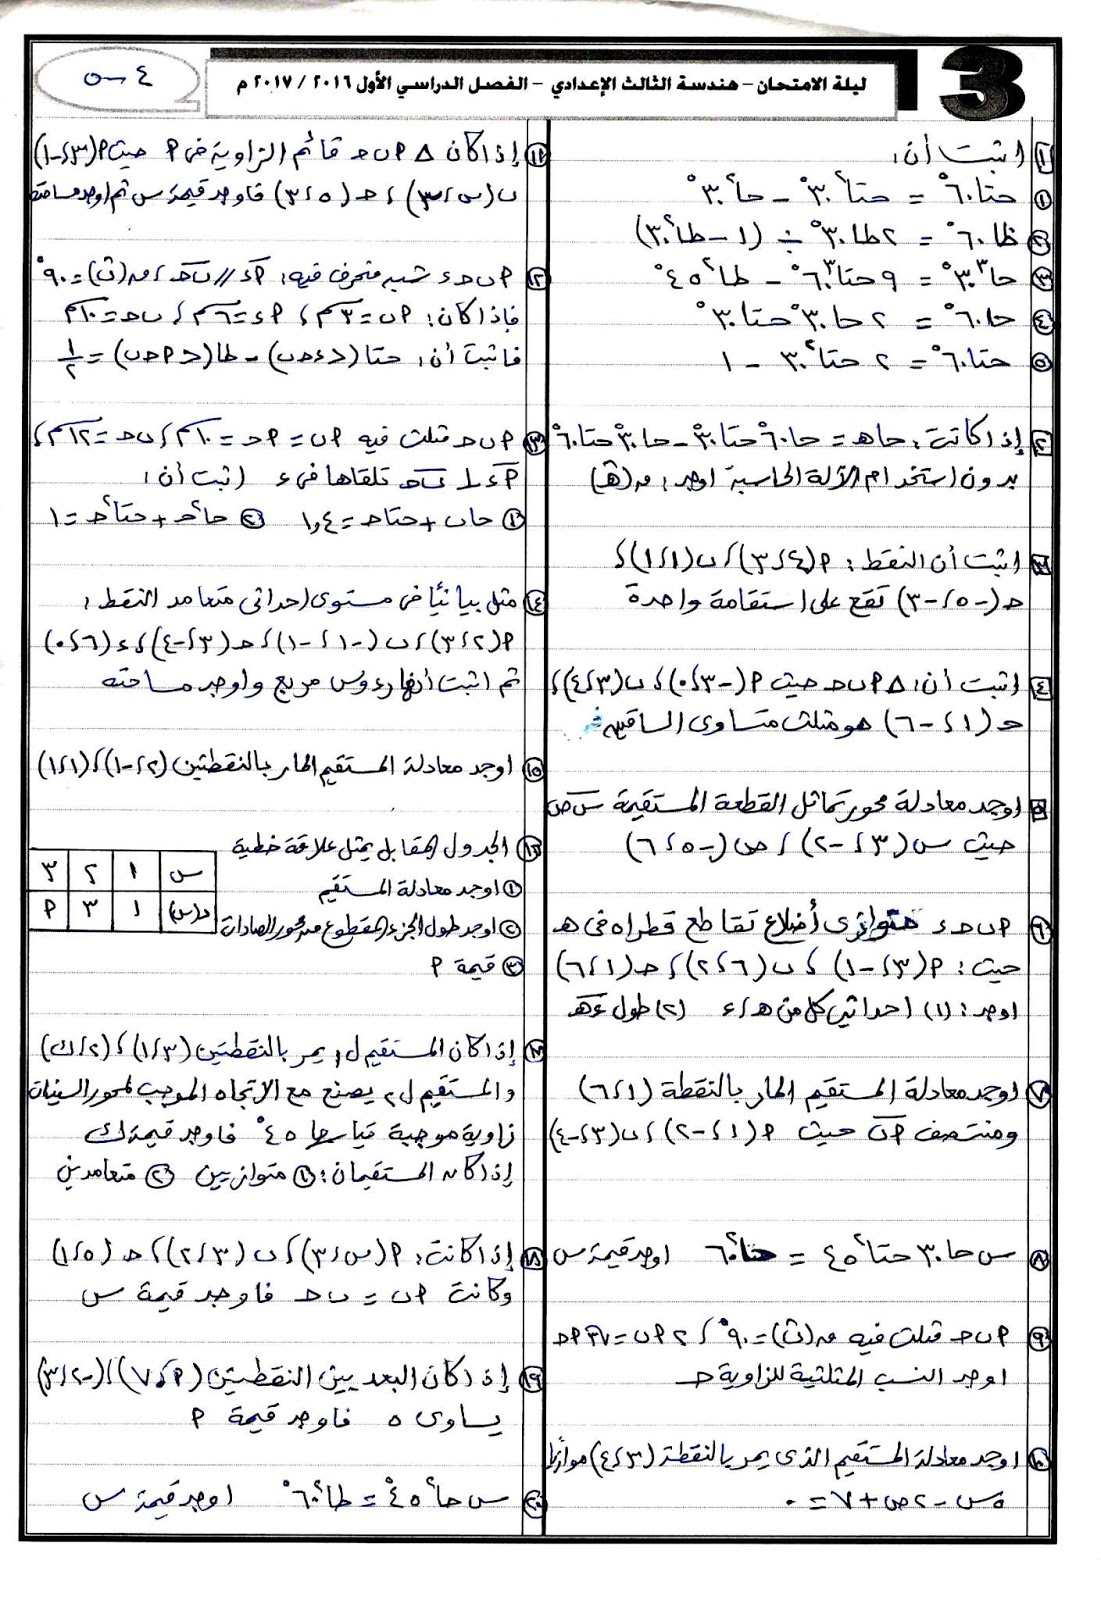 3
ليلة الامتحان - هندسة الثالث الإعدادي - الفصل الدراسي الأول ٢٠١٦ / ٢٠١٧ م
٤ س
١ اثبت أن:
① حتا٦٠° = حتا²٣٠° - حا²٣٠°
② ظا٦٠° = ٢طا٣٠° ÷ (١ - طا²٣٠°)
③ حا³٣٠° = ٩حتا³٦٠° - طا²٤٥°
④ حا٦٠° = ٢ حا٣٠° حتا٣٠°
⑤ حتا٦٠° = ٢ حتا²٣٠° - ١
٢ إذا كانت: حاهـ = حا٦٠° حتا٣٠° - حا٣٠° حتا٦٠°
بدون استخدام الآلة الحاسبة اوجد: ق(هـ)
٣ اثبت أن النقط: P(٤،٣)، ب(١،١)،
حـ(-٥،-٣) تقع على استقامة واحدة
٤ اثبت أن: △ P ب حـ حيث P(-٣،٠)، ب(٣،٤)،
حـ(١،-٦) هو مثلث متساوى الساقين
٥ اوجد معادلة محور تماثل القطعة المستقيمة س ص
حيث س(٣،-٢)، ص(-٥،٦)
٦ P ب حـ ء متوازى أضلاع تقاطع قطراه فى هـ
حيث: P(٣،-١)، ب(٦،٢)، حـ(١،٦)
اوجد: (١) احداثيى كل من هـ، ء (٢) طول ء هـ
٧ اوجد معادلة المستقيم المار بالنقطة (١،٦)
ومنتصف P ب حيث P(١،-٢)، ب(٣،-٤)
٨ س حا٣٠° حتا²٤٥° = حتا²٦٠° اوجد قيمة س
٩ P ب حـ مثلث فيه ق(ب) = ٩٠°، ٢ P ب = √٣ P حـ
اوجد النسب المثلثية للزاوية حـ
١٠ اوجد معادلة المستقيم الذى يمر بالنقطة (٣،٤) موازيًا
٥س - ٢ص + ٧ = ٠
١١ إذا كان △ P ب حـ قائم الزاوية فى P حيث P(٣،-١)
ب(س،٣)، حـ(٥،٣) فاوجد قيمة س ثم اوجد مساحته
١٢ P ب حـ ء شبه منحرف فيه: P ء // ب حـ، ق(ب) = ٩٠°
فإذا كان: P ب = ٣سم، P ء = ٦سم، ب حـ = ١٠سم
فاثبت أن: حتا(> ء حـ ب) - طا(> P حـ ب) = ١/٢
١٣ P ب حـ مثلث فيه P ب = P حـ = ١٠سم، ب حـ = ١٢سم،
P ء ⊥ ب حـ تلقاها فى ء اثبت أن:
① حاب + حتاحـ = ١,٤ ② حا²حـ + حتا²حـ = ١
١٤ مثل بيانيًا فى مستوى احداثى متعامد النقط:
P(٢،٣)، ب(-١،-١)، حـ(٣،-٤)، ء(٦،٠)
ثم اثبت أنها رءوس مربع واوجد مساحته
١٥ اوجد معادلة المستقيم المار بالنقطتين (٢،-١)، (١،١)
١٦ الجدول المقابل يمثل علاقة خطية
① اوجد معادلة المستقيم
② اوجد طول الجزء المقطوع من محور الصادات
③ قيمة P
س ١ ٢ ٣
د(س) ١ ٣ P
١٧ إذا كان المستقيم ل١ يمر بالنقطتين (٣،١)، (٢،ك)
والمستقيم ل٢ يصنع مع الاتجاه الموجب لمحور السينات
زاوية موجبة قياسها ٤٥° فاوجد قيمة ك
إذا كان المستقيمان: ① متوازيين ② متعامدين
١٨ إذا كانت: P(س،٣)، ب(٣،٢)، حـ(٥،١)
وكانت P ب = ب حـ فاوجد قيمة س
١٩ إذا كان البعد بين النقطتين (P،٧)، (-٢،٣)
يساوى ٥ فاوجد قيمة P
٢٠ س حا²٤٥° = طا²٦٠° اوجد قيمة س